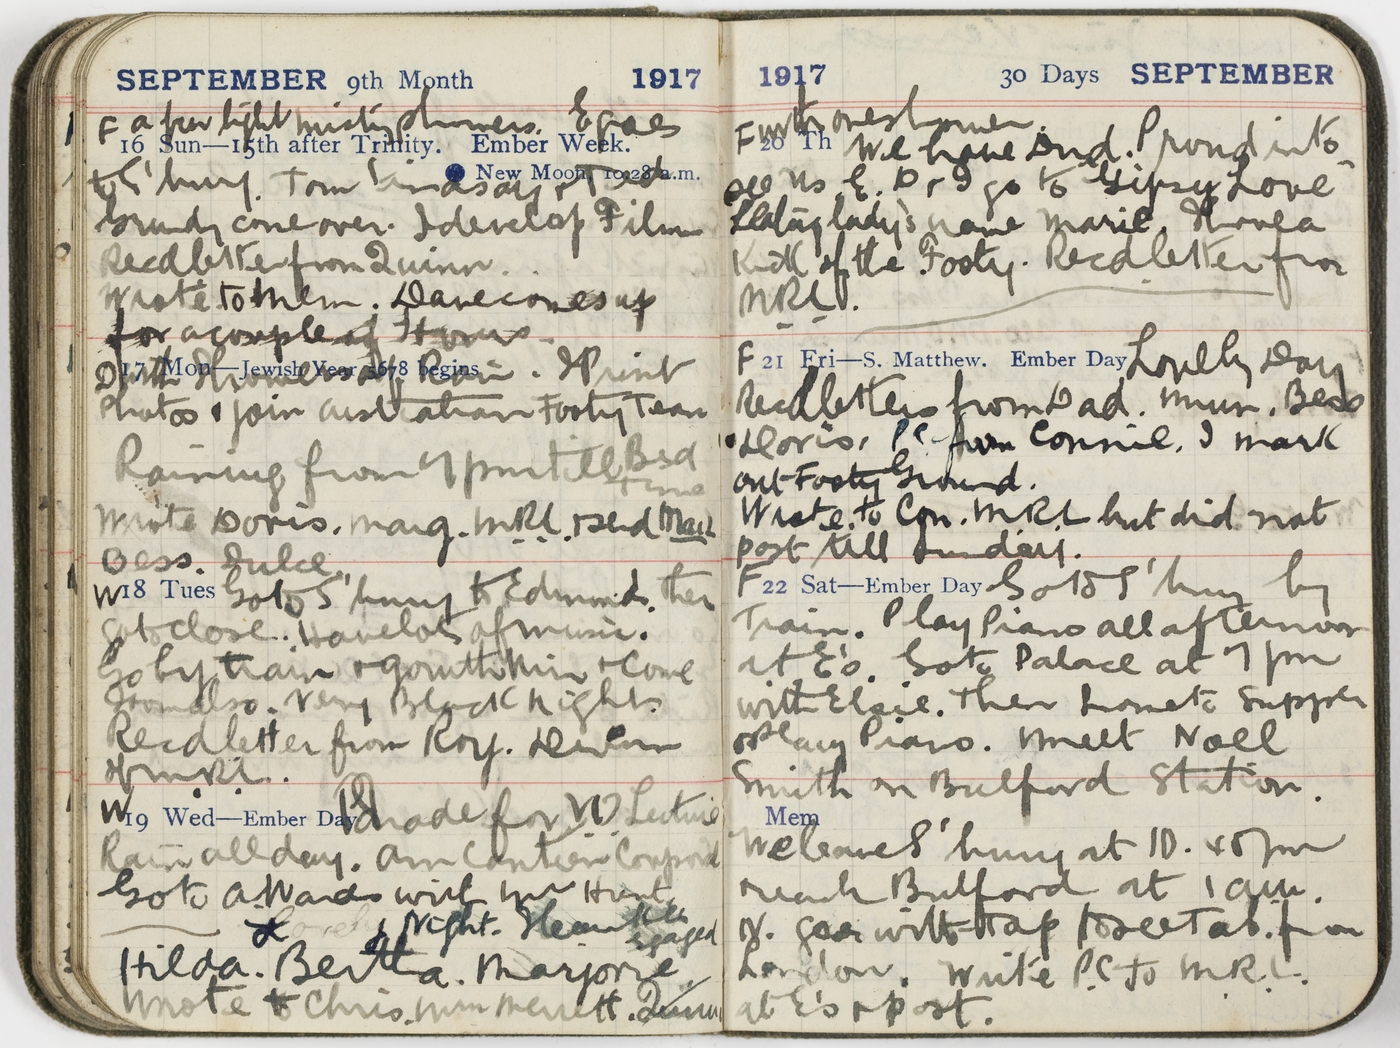 SEPTEMBER 9th Month 1917
F a few light misty showers. E goes
16 Sun—15th after Trinity. Ember Week.
New Moon, 10.28 a.m.
to S'bury. Tom Lindsay & Ted
Grundy come over. I develop Films
Recd letter from Quinn.
Wrote to them. Dave comes up
for a couple of Hours.
17 Mon—Jewish Year 5678 begins
D with Showers of Rain. I Print
Photos & join australian Footy Team
Raining from 7 pm till Bed
time
Wrote Doris. Marg. MRL. & send
Bess. Dulce.
W 18 Tues Go to S'bury to Edmunds. then
go to close. Have lots of music.
Go by train & go with Min & Come
Home also. Very Black Nights
Recd letter from Roy.
W
19 Wed—Ember Day Parade for VD Lecture
Rain all day. Am Canteen Corporal
Go to A Wards with Mr Hunt
Lovely Night. Hear
engaged
Hilda. Bertha. Marjorie.
Wrote to Chris. Mrs Merrett. Quinn
1917 30 Days SEPTEMBER
F with one shower.
20 Th We have 2nd. Proud in to
see us E. D & I go to "Gipsy Love"
Leading lady's name Marie. Have a
Kick of the Footy. Recd letter from
MRL.
F 21 Fri—S. Matthew. Ember Day Lovely Day
Recd letters from Dad. Mum. Bess
Doris. PC from Connie. I mark
out Footy Ground.
Wrote to Con. MRL but did not
post till Sunday.
F 22 Sat—Ember Day Go to S'bury by
Train. Play Piano all afternoon
at E's. Go to Palace at 7 pm
with Elsie. Then home to Supper
& Play Piano. Meet Noell
Smith on Bulford Station.
Mem
We leave S'bury at 10.40 pm
reach Bulford at 1 am.
N. goes with Tap to see Tab. from
London. Write P.C to MRL.
at E's & post.